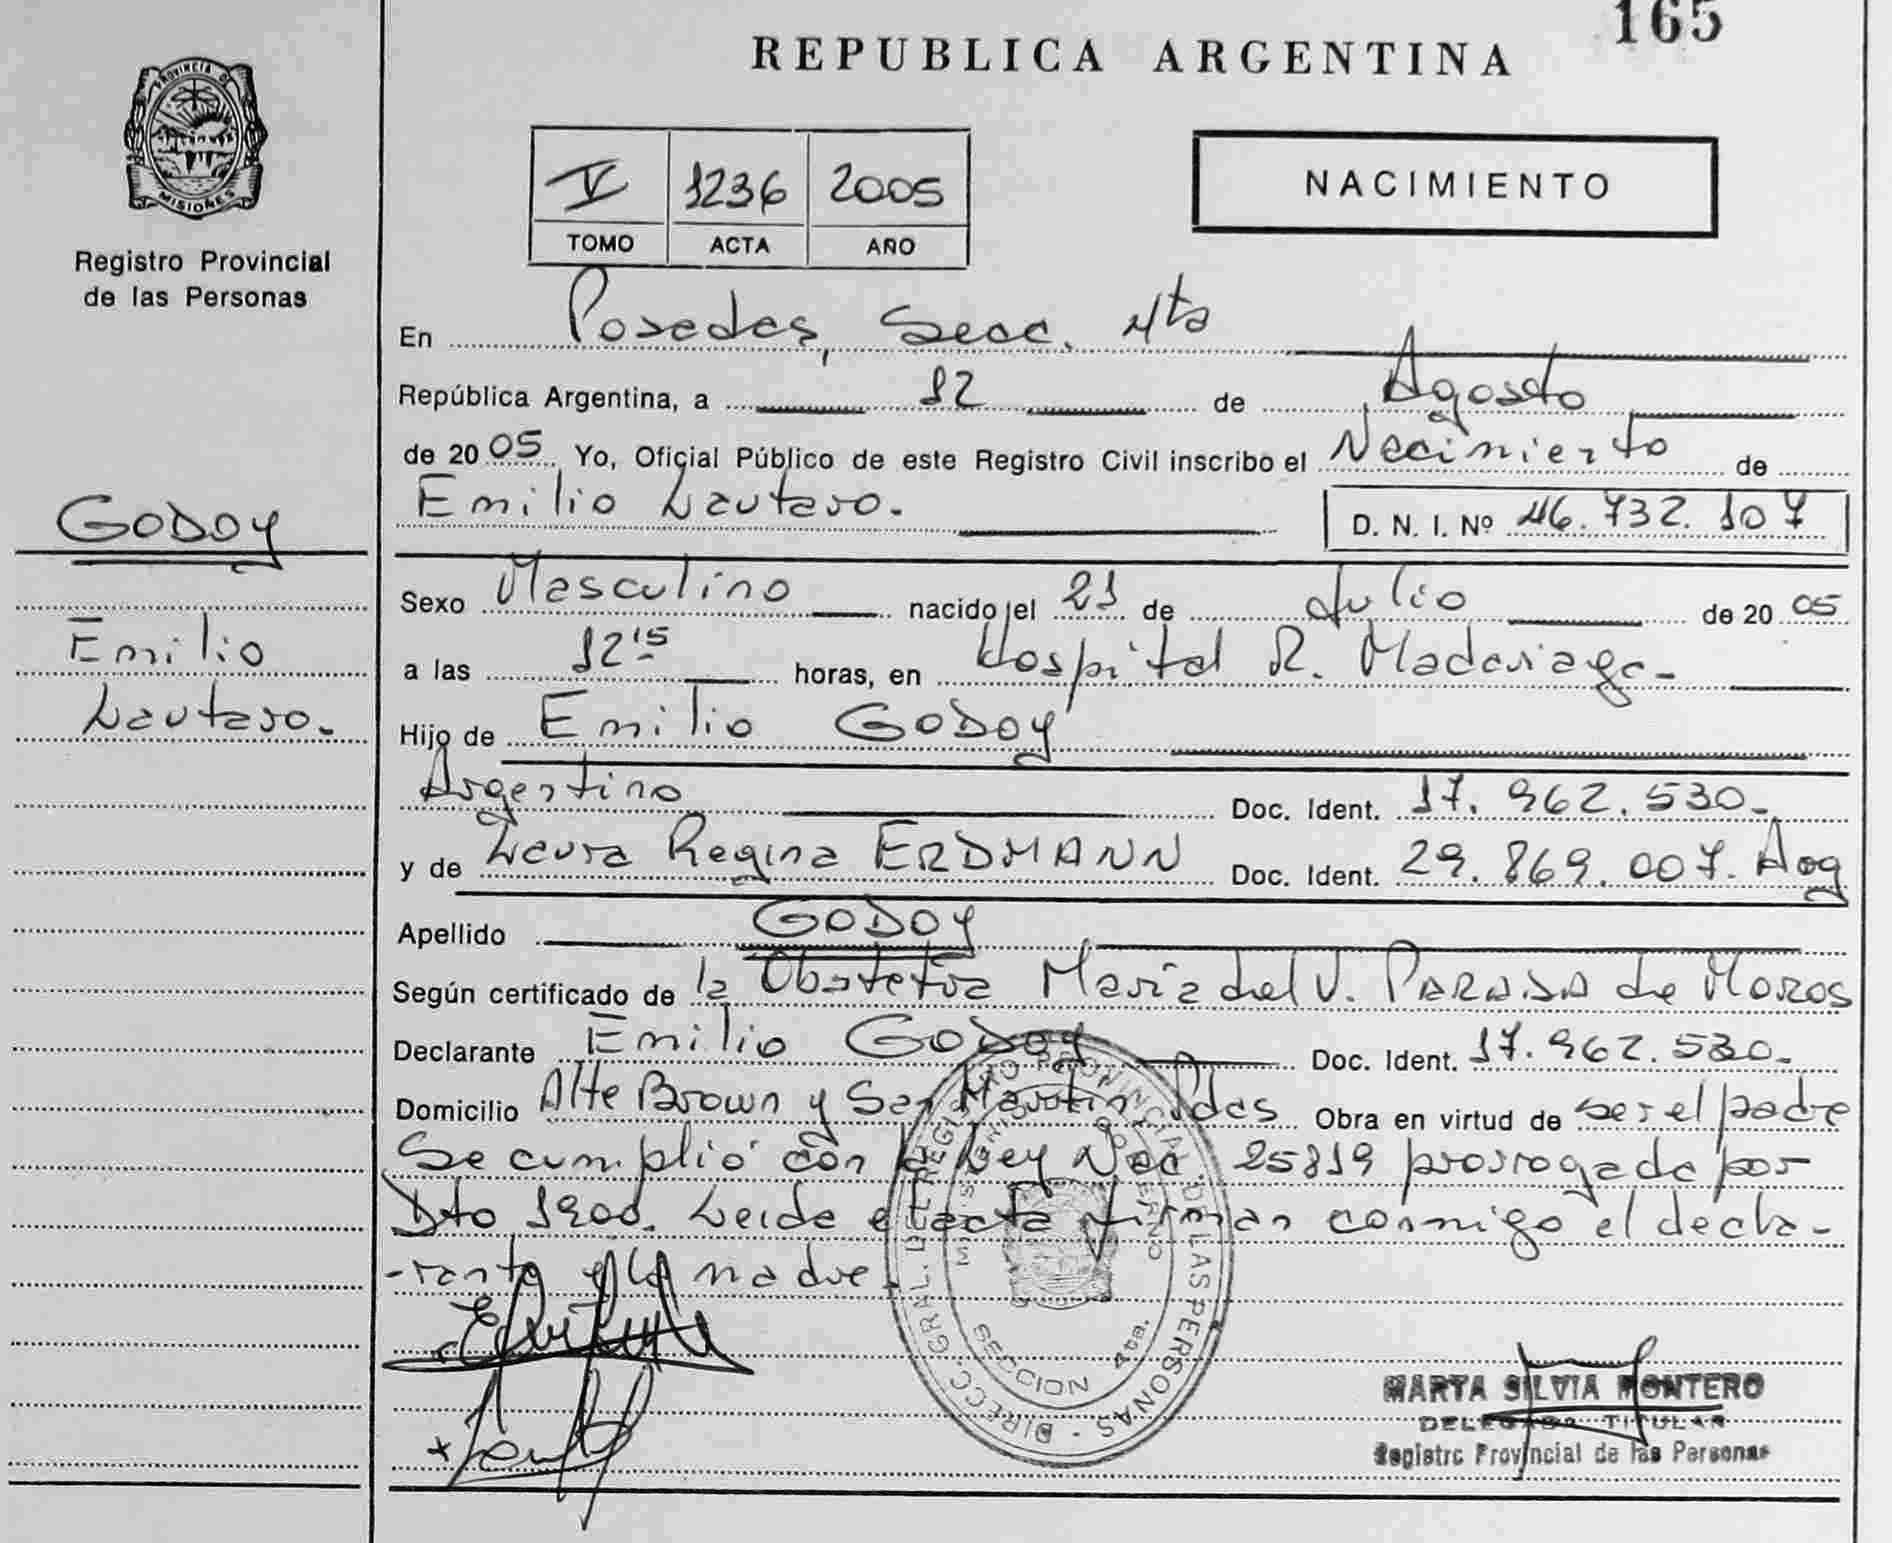 165
REPUBLICA ARGENTINA
PROVINCIA DE
MISIONES
Registro Provincial
de las Personas
V 1236 2005
TOMO ACTA AÑO
NACIMIENTO
En Posadas, Secc. 4ta
República Argentina, a 12 de Agosto
de 2005 Yo, Oficial Público de este Registro Civil inscribo el Nacimiento de
Emilio Lautaro. D. N. I. Nº 46.732.107
GODOY
Emilio
Lautaro.-
Sexo Masculino nacido el 21 de Julio de 2005
a las 12 15 horas, en Hospital R. Madariaga-
Hijo de Emilio GODOY
Argentino Doc. Ident. 17.962.530.-
y de Laura Regina ERDMANN Doc. Ident. 29.869.007. Arg
Apellido GODOY
Según certificado de la Obstetra María del V. PARASA de Moros
Declarante Emilio GODOY Doc. Ident. 17.962.530.-
Domicilio Alte Brown y San Martin Pdas Obra en virtud de ser el padre
Se cumplió con la Ley Nac 25819 prorrogada por
Dto 1900. Leida el acta firman conmigo el decla-
-rante y la madre.
DIRECC. GRAL. DEL REGISTRO PROVINCIAL DE LAS PERSONAS
MINISTERIO DE GOBIERNO
SECCION 4ta.
MARTA SILVIA MONTERO
DELEGADA TITULAR
Registro Provincial de las Personas